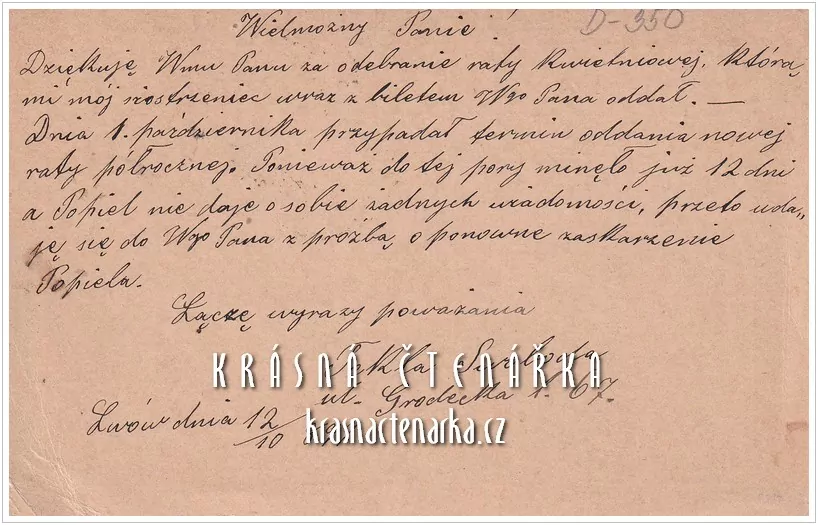 D-350
Wielmożny Panie!
Dziękuję Wmu Panu za odebranie raty kwietniowej, którą
mi mój siostrzeniec wraz z biletem Wgo Pana oddał. —
Dnia 1. października przypadał termin oddania nowej
raty półrocznej. Ponieważ do tej pory minęło już 12 dni
a Popiel nie daje o sobie żadnych wiadomości, przeto uda„
ję się do Wgo Pana z prośbą o ponowne zaskarżenie
Popiela.
Łączę wyrazy poważania
Tekla
KRÁSNÁ ČTENÁŘKA
ul. Grodecka l. 67.
Lwów dnia 12/10
krasnactenarka.cz